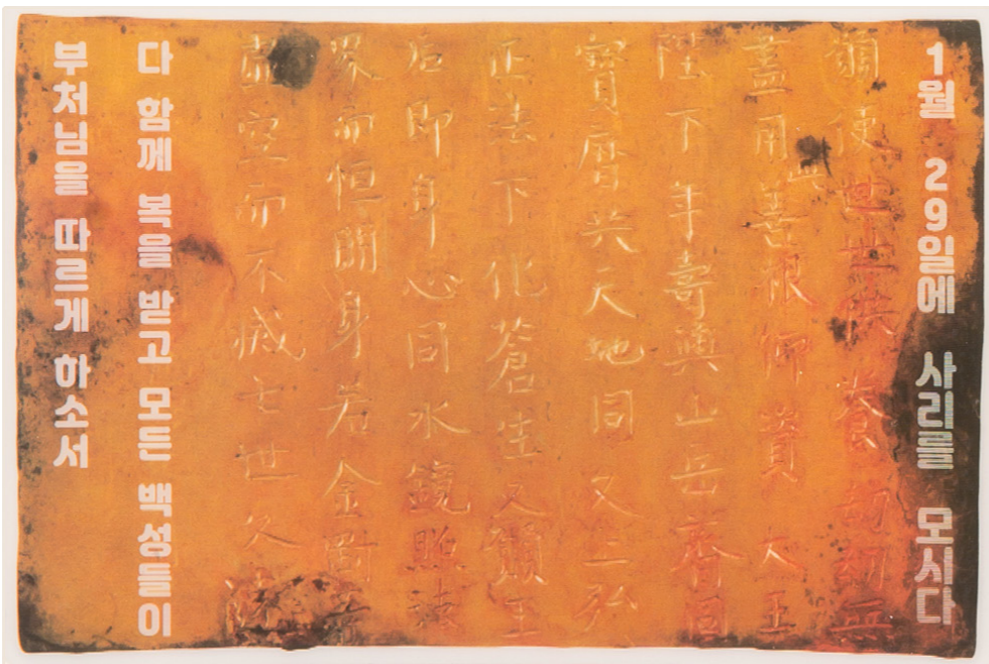 1월 29일에 사리를 모시다
願使世世供養劫劫無
盡用善根仰資 大王
陛下年壽與山岳齊固
寶曆共天地同久上弘
正法下化蒼生又願王
后即身心同水鏡照法
界而恒明身若金剛等
虛空而不滅七世久遠
다 함께 복을 받고 모든 백성들이
부처님을 따르게 하소서